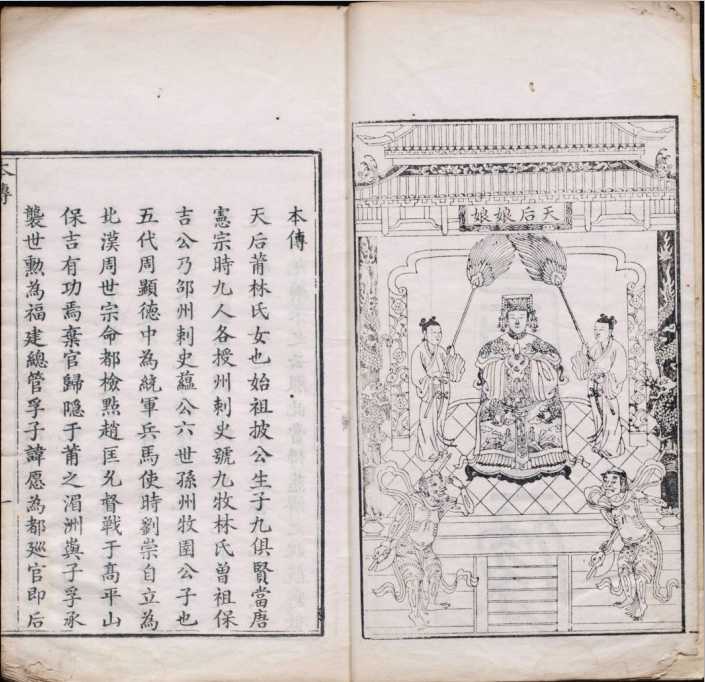 天后娘娘
本傳
天后莆林氏女也始祖披公生子九俱賢當唐
憲宗時九人各授州刺史號九牧林氏曾祖保
吉公乃邵州刺史蘊公六世孫州牧圉公子也
五代周顯德中為統軍兵馬使時劉崇自立為
北漢周世宗命都檢點趙匡允督戰于高平山
保吉有功焉棄官歸隱于莆之湄洲嶼子孚承
襲世勳為福建總管孚子諱愿為都廵官即后
本傳
一